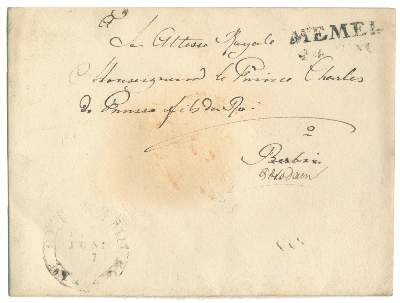 A
Son Altesse Royale
Monseigneur le Prince Charles
de Prusse fils du Roi
à
Berlin
Potsdam
MEMEL
JUNI
7